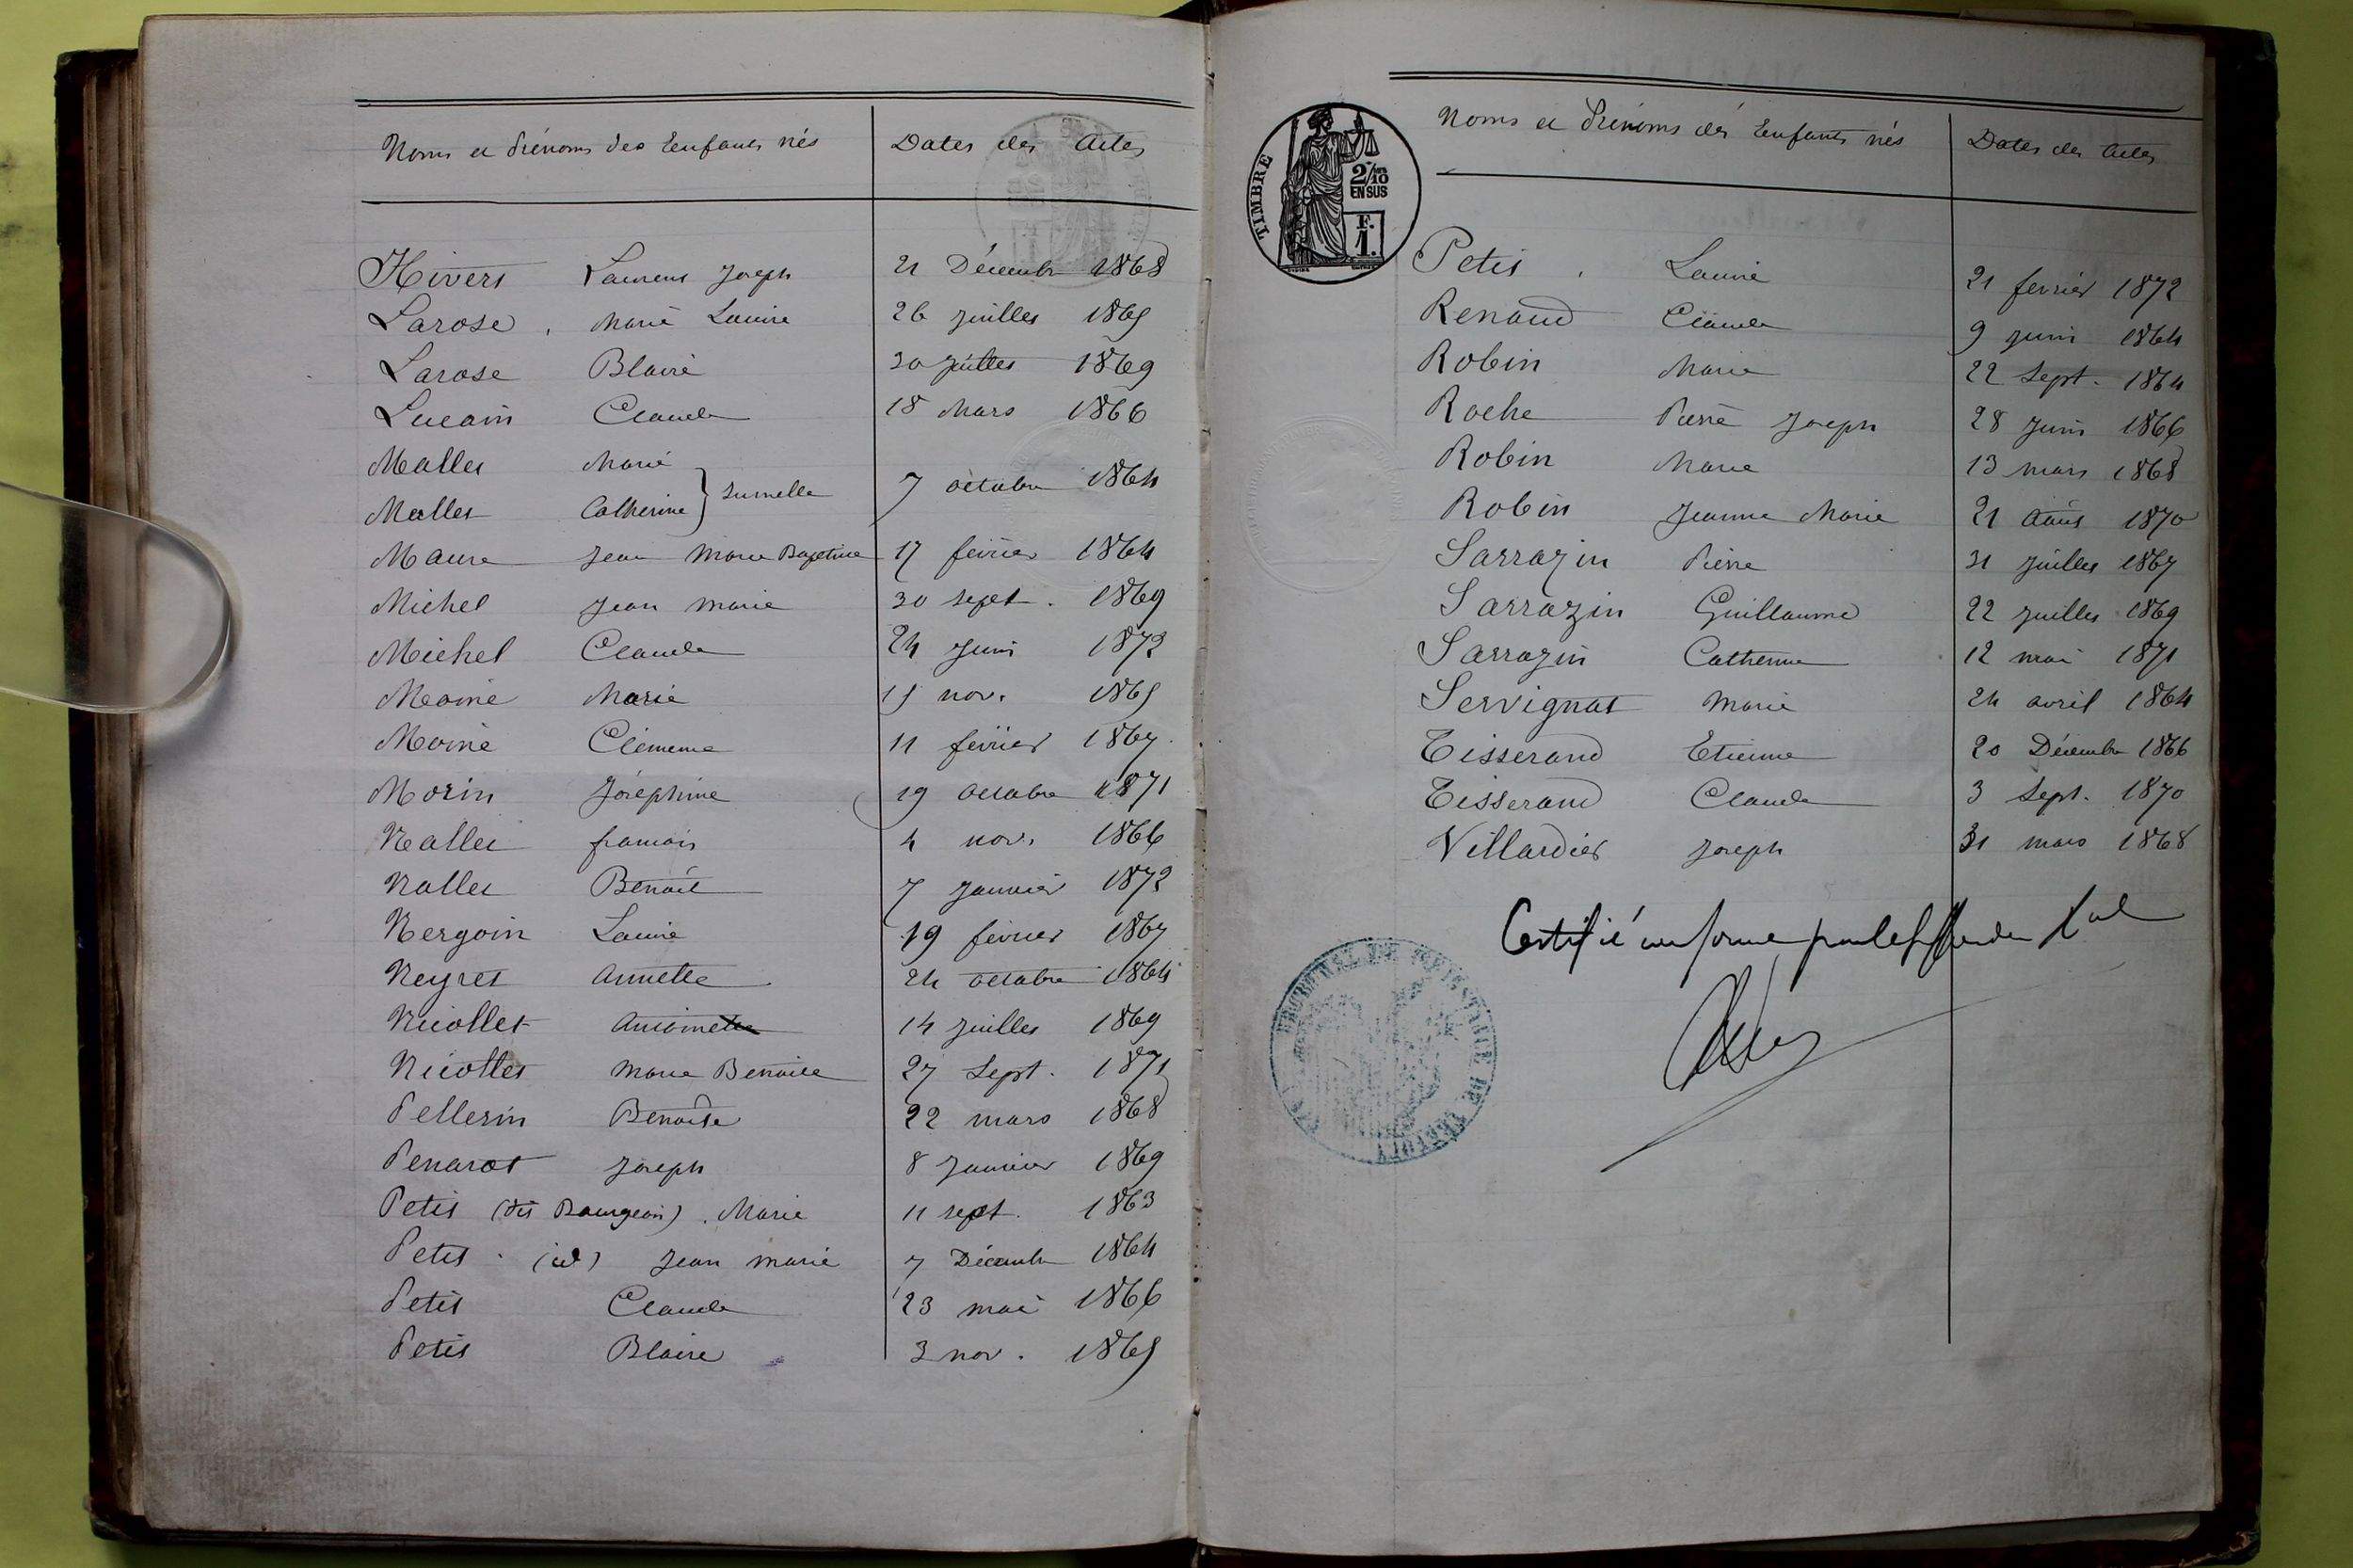 Noms et Prénoms des Enfants nés Dates des Actes
Hivert Laurent Joseph 21 Décembre 1868
Larose, Marie Louise 26 juillet 1865
Larose Blaise 30 juillet 1869
Lucain Claude 18 Mars 1866
Mallet Marie
Mallet Catherine } Jumelle 7 octobre 1864
Maure Jean Marie Baptiste 17 février 1864
Michel Jean Marie 30 sept. 1869
Michel Claude 24 Juin 1872
Moine Marie 15 nov. 1865
Moine Clémence 11 février 1867
Morin Joséphine 19 Octobre 1871
Nallet françois 4 nov. 1866
Nallet Benoît 7 Janvier 1872
Nergoin Louise 19 février 1867
Neyret Annette 24 octobre 1864
Nicollet Antoinette 14 juillet 1869
Nicollet Marie Benoite 27 Sept. 1871
Pellerin Benoite 22 mars 1868
Penarot Joseph 8 Janvier 1869
Petit (dit Bourgeois). Marie 11 sept. 1863
Petit. (id) Jean Marie 7 Décembre 1864
Petit Claude 23 mai 1866
Petit Blaise 3 nov. 1865
TIMBRE
2/10
EN SUS
F.
1.
Noms et Prénoms des Enfants nés Dates des Actes
Petit, Louise 21 fevrier 1872
Renaud Claude 9 juin 1864
Robin Marie 22 Sept. 1864
Roche Pierre Joseph 28 Juin 1866
Robin Marie 13 mars 1868
Robin Jeanne Marie 21 Août 1870
Sarrazin Pierre 31 Juillet 1867
Sarrazin Guillaume 22 juillet 1869
Sarrazin Catherine 12 mai 1871
Servignat Marie 24 avril 1864
Tisserand Etienne 20 Décembre 1866
Tisserand Claude 3 Sept. 1870
Villardier Joseph 31 mars 1868
Certifié conforme par le Greffier